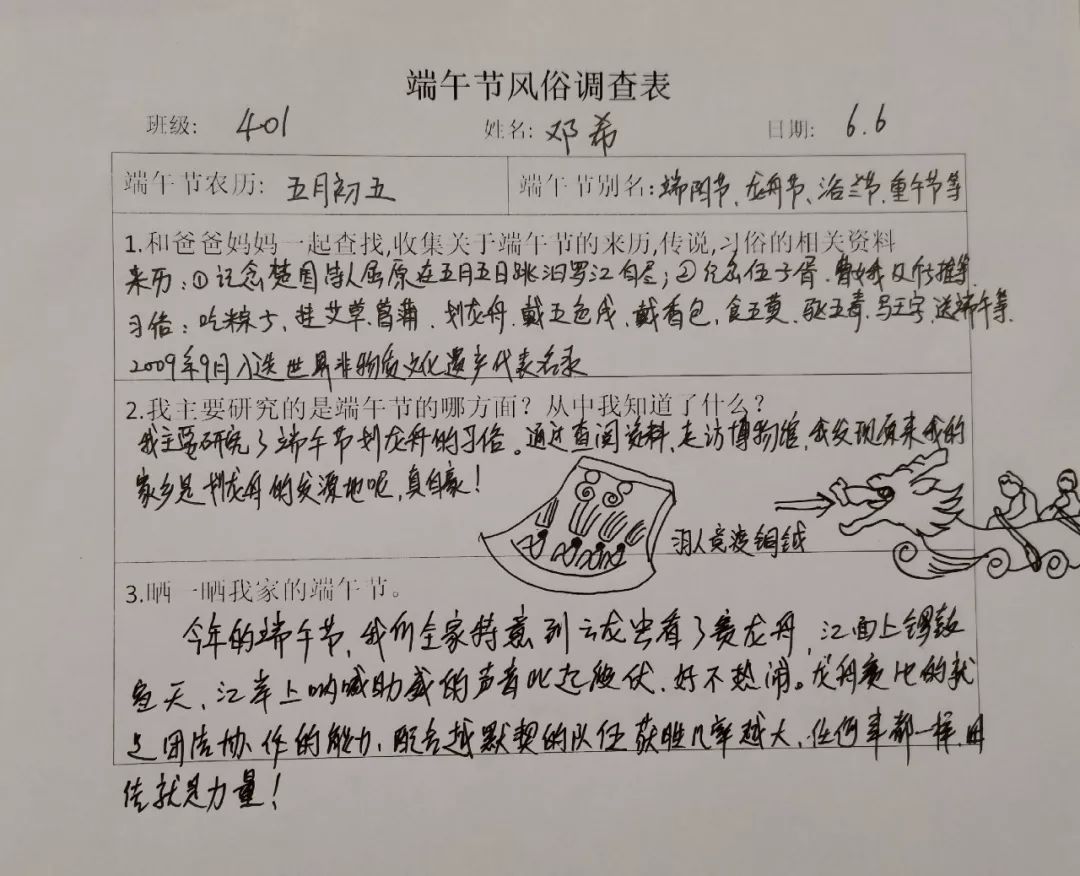 端午节风俗调查表
班级: 401 姓名: 邓希 日期: 6.6
端午节农历: 五月初五 端午节别名: 端阳节、龙舟节、浴兰节、重午节等
1.和爸爸妈妈一起查找,收集关于端午节的来历,传说,习俗的相关资料
来历:①纪念楚国诗人屈原在五月五日跳汨罗江自尽;②纪念伍子胥、曹娥及介子推等.
习俗:吃粽子、挂艾草、菖蒲、划龙舟、戴五色线、戴香包,食五黄、驱五毒、写王字、送端午等.
2009年9月入选世界非物质文化遗产代表名录
2.我主要研究的是端午节的哪方面?从中我知道了什么?
我主要研究了端午节划龙舟的习俗。通过查阅资料,走访博物馆,我发现原来我的
家乡是划龙舟的发源地呢,真自豪!
羽人竞渡铜钺
3.晒一晒我家的端午节。
今年的端午节,我们全家特意到云龙看了赛龙舟,江面上锣鼓
喧天、江岸上呐喊助威的声音此起彼伏,好不热闹。龙舟赛比的就
是团结协作的能力,配合越默契的队伍获胜几率越大,任何事都一样,团
结就是力量!